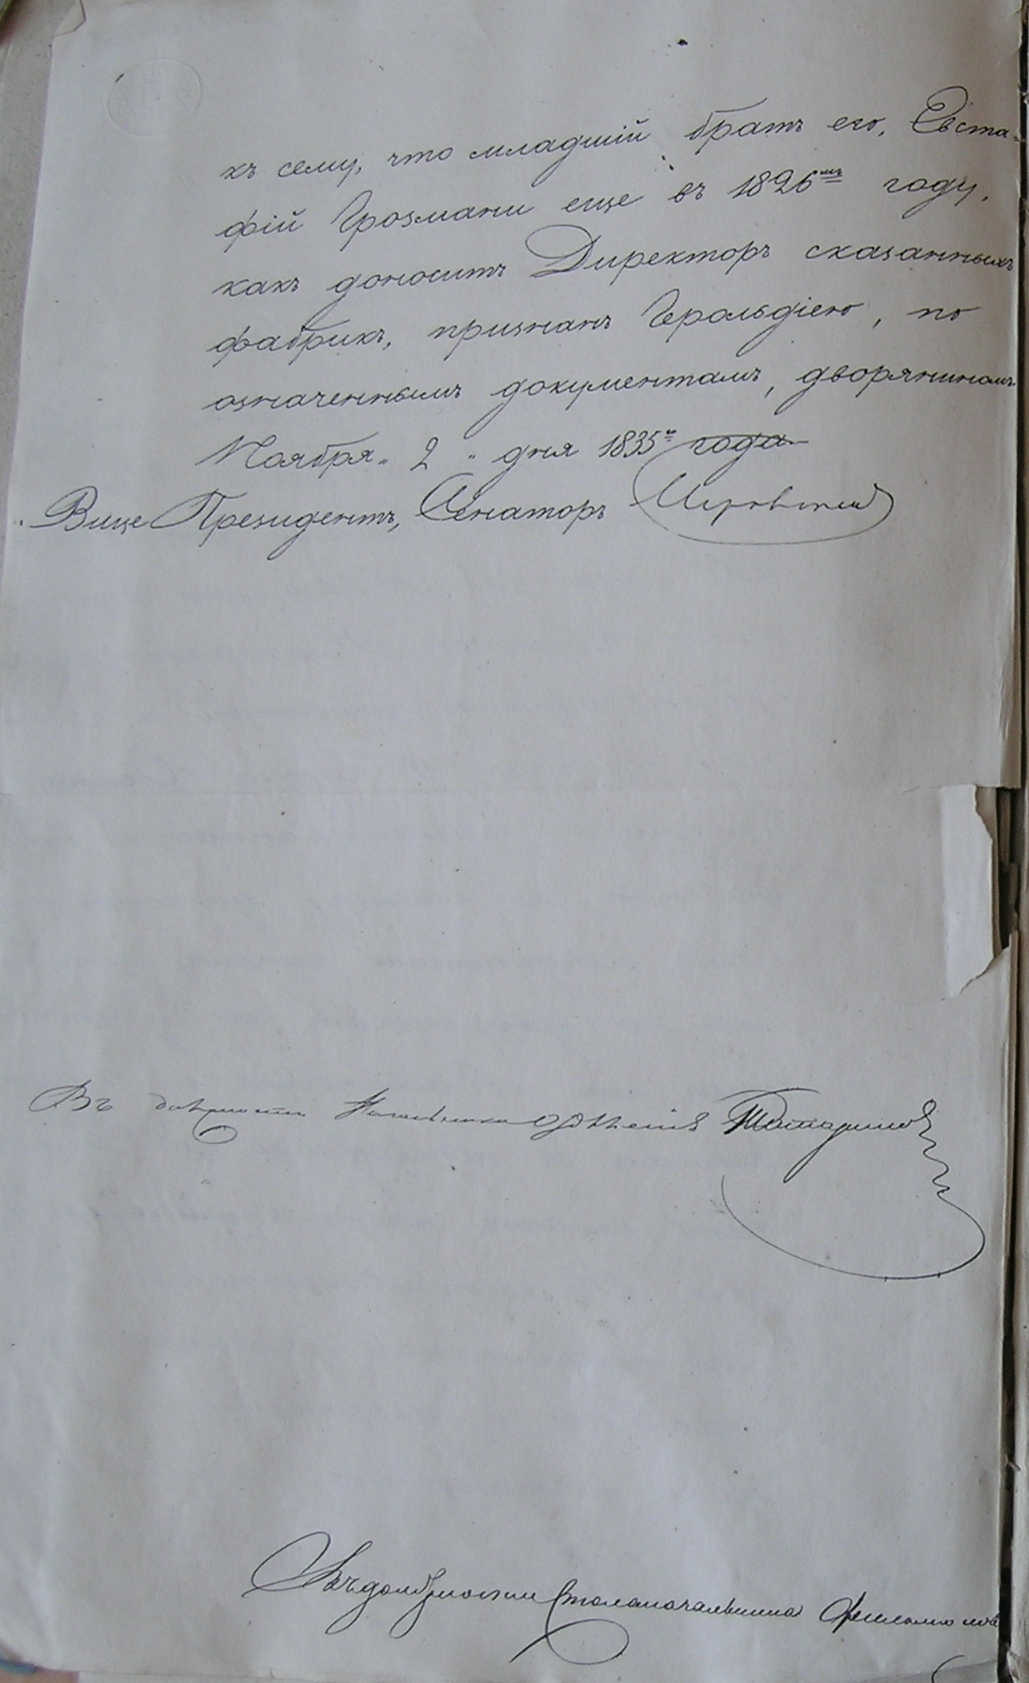 къ сему, что младшій братъ его, Евста-
фій Грозмани еще въ 1826мъ году,
какъ доноситъ Директоръ сказанныхъ
фабрикъ, признанъ Герольдіею, по
означеннымъ документамъ, дворяниномъ.
Ноября „ 2 „ дня 1835го года
Вице Президентъ, Сенаторъ
Въ должности Начальника Отдѣленія Татариновъ
Въ должности Столоначальника